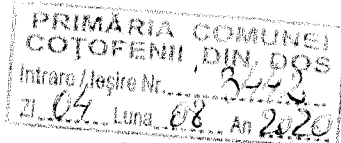 PRIMĂRIA COMUNEI
COȚOFENII DIN DOS
Intrare / Ieșire Nr. 3442
Zi 04 Luna 08 An 2020